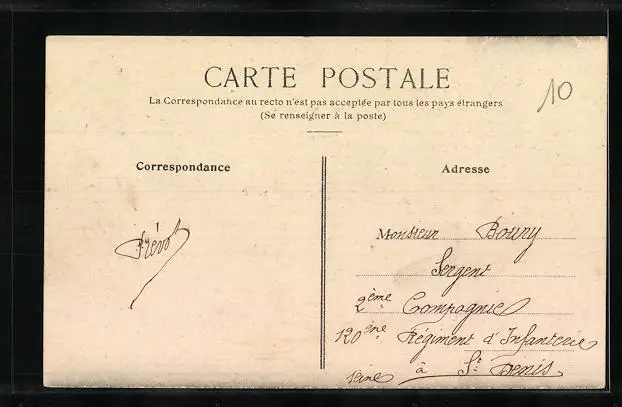 CARTE POSTALE
La Correspondance au recto n'est pas acceptée par tous les pays étrangers
(Se renseigner à la poste)
10
Correspondance
Prévot
Adresse
Monsieur Boury
Sergent
2ème Compagnie
120ème Régiment d'Infanterie
à St Denis
Seine